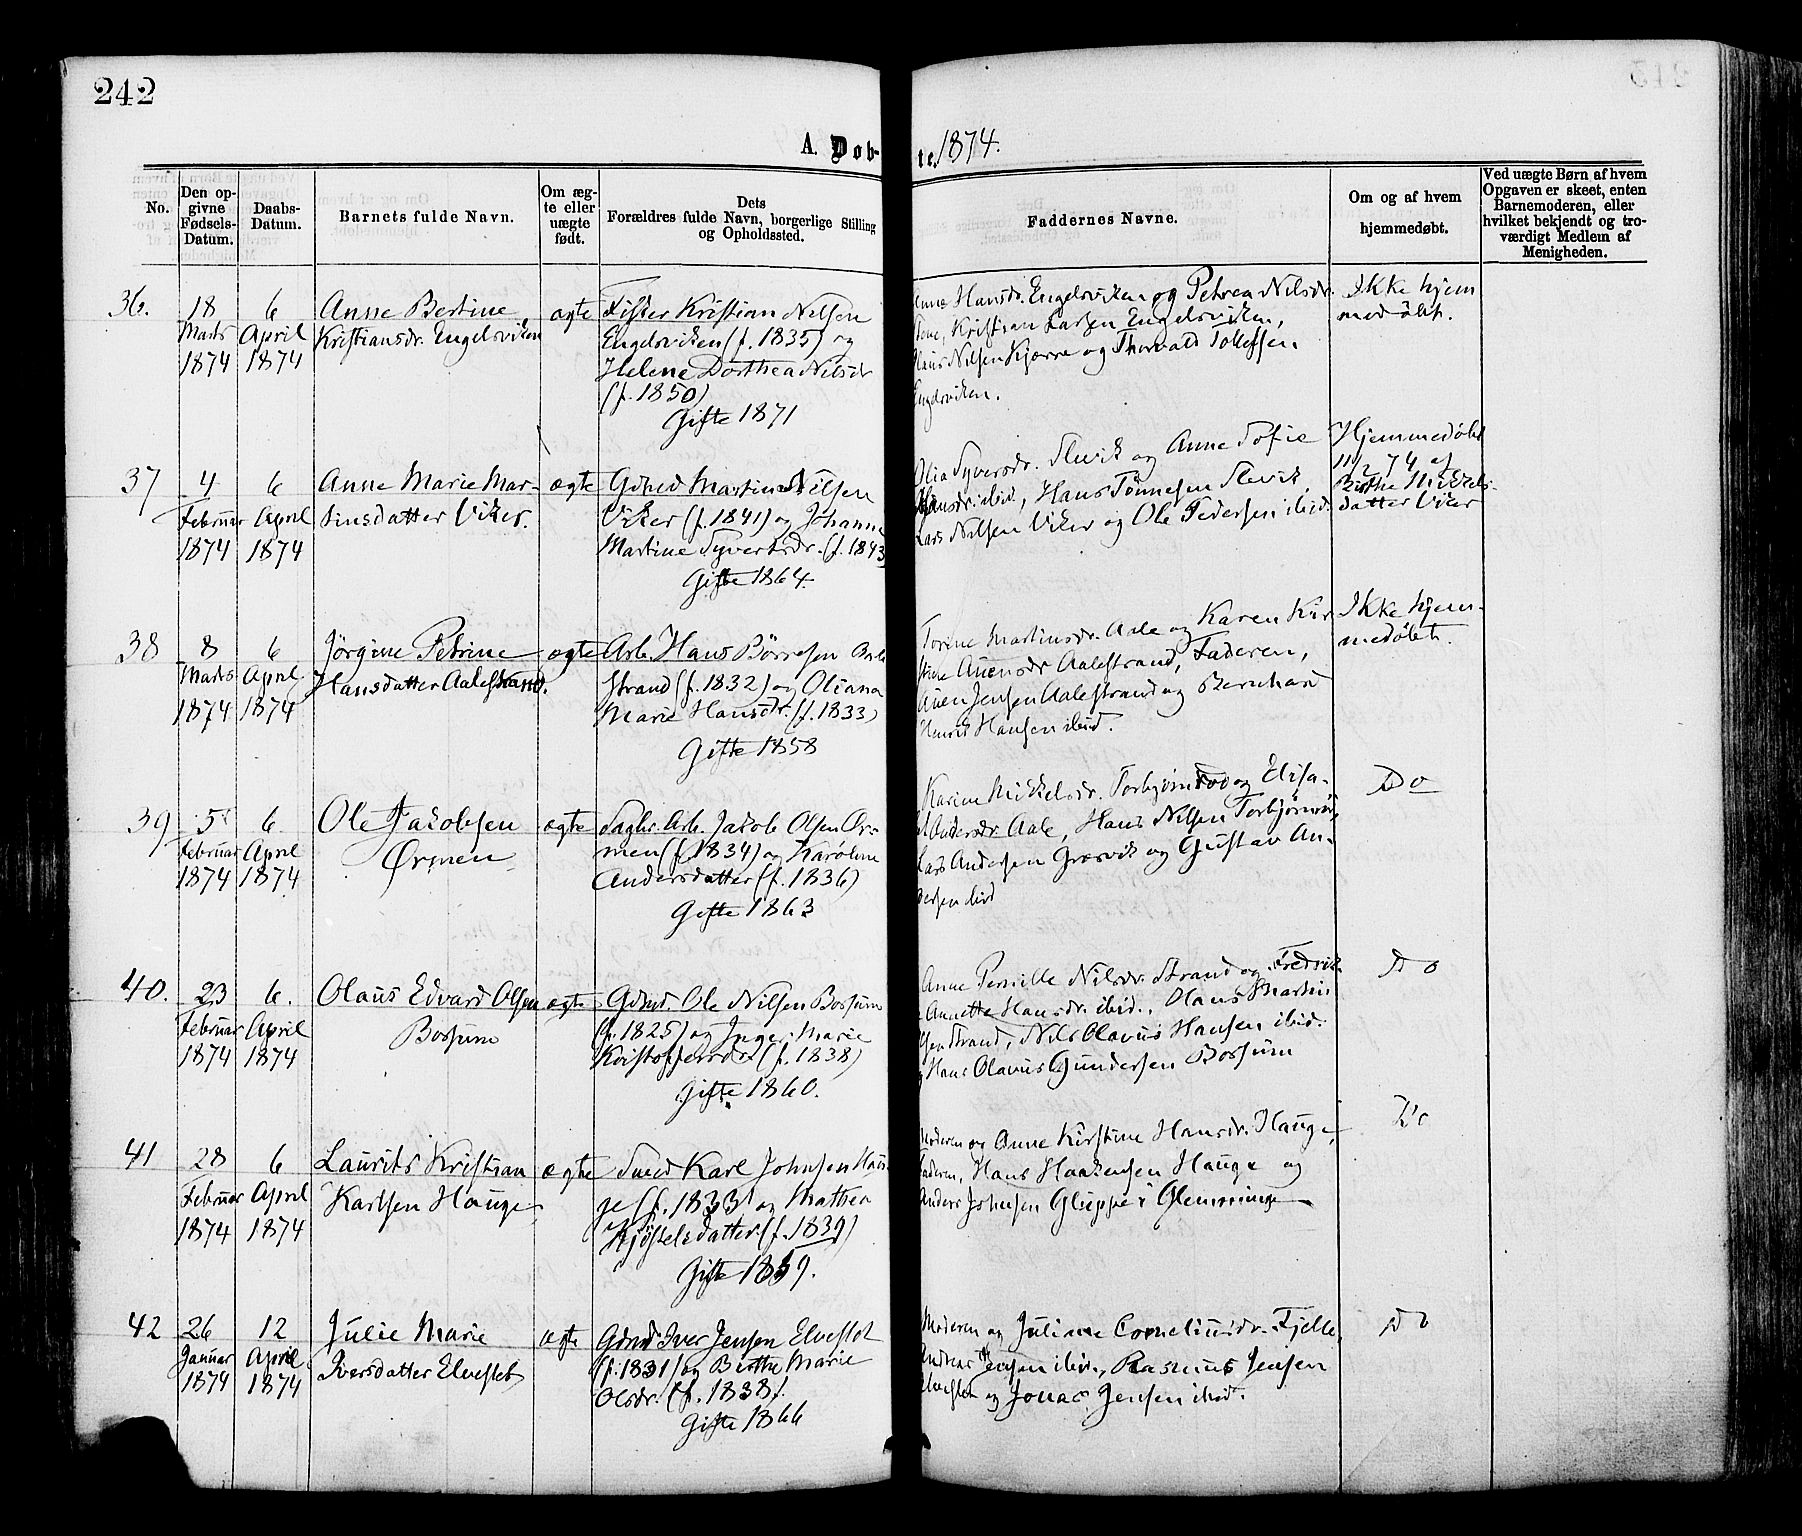 242
A. Døb-
te. 1874.
No.
Den op-
givne
Fødsels-
Datum.
Daabs-
Datum.
Barnets fulde Navn.
Om æg-
te eller
uægte
født.
Dets
Forældres fulde Navn, borgerlige Stilling
og Opholdssted.
Faddernes Navne.
Om og af hvem
hjemmedøbt.
Ved uægte Børn af hvem
Opgaven er skeet, enten
Barnemoderen, eller
hvilket bekjendt og tro-
værdigt Medlem af
Menigheden.
36.
18
Marts
1874
6
April
1874
Anne Bertine
Kristiansdr. Engelsviken
ægte
Fisker Kristian Nilsen
Engelsviken (f. 1835) og
Helene Dorthea Nilsdr
(f. 1850)
Gifte 1871
Hansdr. Engelsviken og Petrea Nilsdr.
Kristian Larsen Engelsviken,
Nilsen Kjærre og Thorvald Tollefsen
Engelsviken.
Ikke hjem
medøbt.
37
4
Februar
1874
6
April
1874
Anne Marie Mar-
tinsdatter Viker.
ægte
Gdmd Martin Nilsen
Viker (f. 1841) og Johanne
Martine Syvertsdr. (f. 1843)
Gifte 1864.
Olia Syversdr. Slevik og Anne Sofie
Hansdr. ibid, Hans Tønnesen Slevik,
Lars Nilsen Viker og Ole Pedersen ibid.
Hjemmedøbt
11/2 74 af
Birthe Mikkels-
datter Viker
38
8
Marts
1874
6
April
1874
Jørgine Petrine
Hansdatter Aalestrand.
ægte
Arb. Hans Børresen
strand (f. 1832) og Oliana
Marie Hansdr. (f. 1833)
Gifte 1858
Torine Martinsdr. Aale og Karen Kir
stine Auensdr Aalestrand, Faderen,
Auen Jensen Aalestrand og Bernhard
Henrik Hansen ibid.
Ikke hjem-
medøbt.
39
5
Februar
1874
6
April
1874
Ole Jakobsen
Ørmen
ægte
Sagbr. Arb. Jakob Olsen Ør-
men (f. 1834) og Karoline
Andersdatter (f. 1836)
Gifte 1863
Karine Mikkelsdr. og Elisa-
Andersdr Aale, Hans Nilsen
Lars Andersen Græsvik og Gustav An-
dersen ibid
Do
40.
23
Februar
1874
6.
April
1874
Olaus Edvard Olsen
Bossum
ægte
Gdmd. Ole Nilsen Bossum
(f. 1825) og Inger Marie
Kristoffersdr. (f. 1838)
Gifte 1860.
Anne Pernille Nilsdr. Strand og Fredrik-
Annette Hansdr. ibid., Olaus Martin
Strand, Nils Olavus Hansen ibid.
Hans Olavus Gundersen Bossum
Do
41
28
Februar
1874
6
April
1874
Laurits Kristian
Karlsen Hauge
ægte
Smed Karl Johnsen Hau-
ge (f. 1833) og Mathea
Kjøstelsdatter (f. 1839)
Gifte 1859.
Moderen og Anne Kirstine Hansdr. Hauge,
Faderen, Hans Haakensen Hauge og
Anders Johnsen Gluppe i Glemminge
Do
42
26
Januar
1874
12
April
1874
Julie Marie
Iversdatter Elvestet
ægte
Gdmd Iver Jensen Elvestet
(f. 1831) og Birthe Marie
Olsdr. (f. 1838).
Gifte 1866
Moderen og Juliane Corneliusdr. Fjelle
Andreas Jensen ibid., Rasmus Jensen
Elvestet og Jonas Jensen ibid.
Do